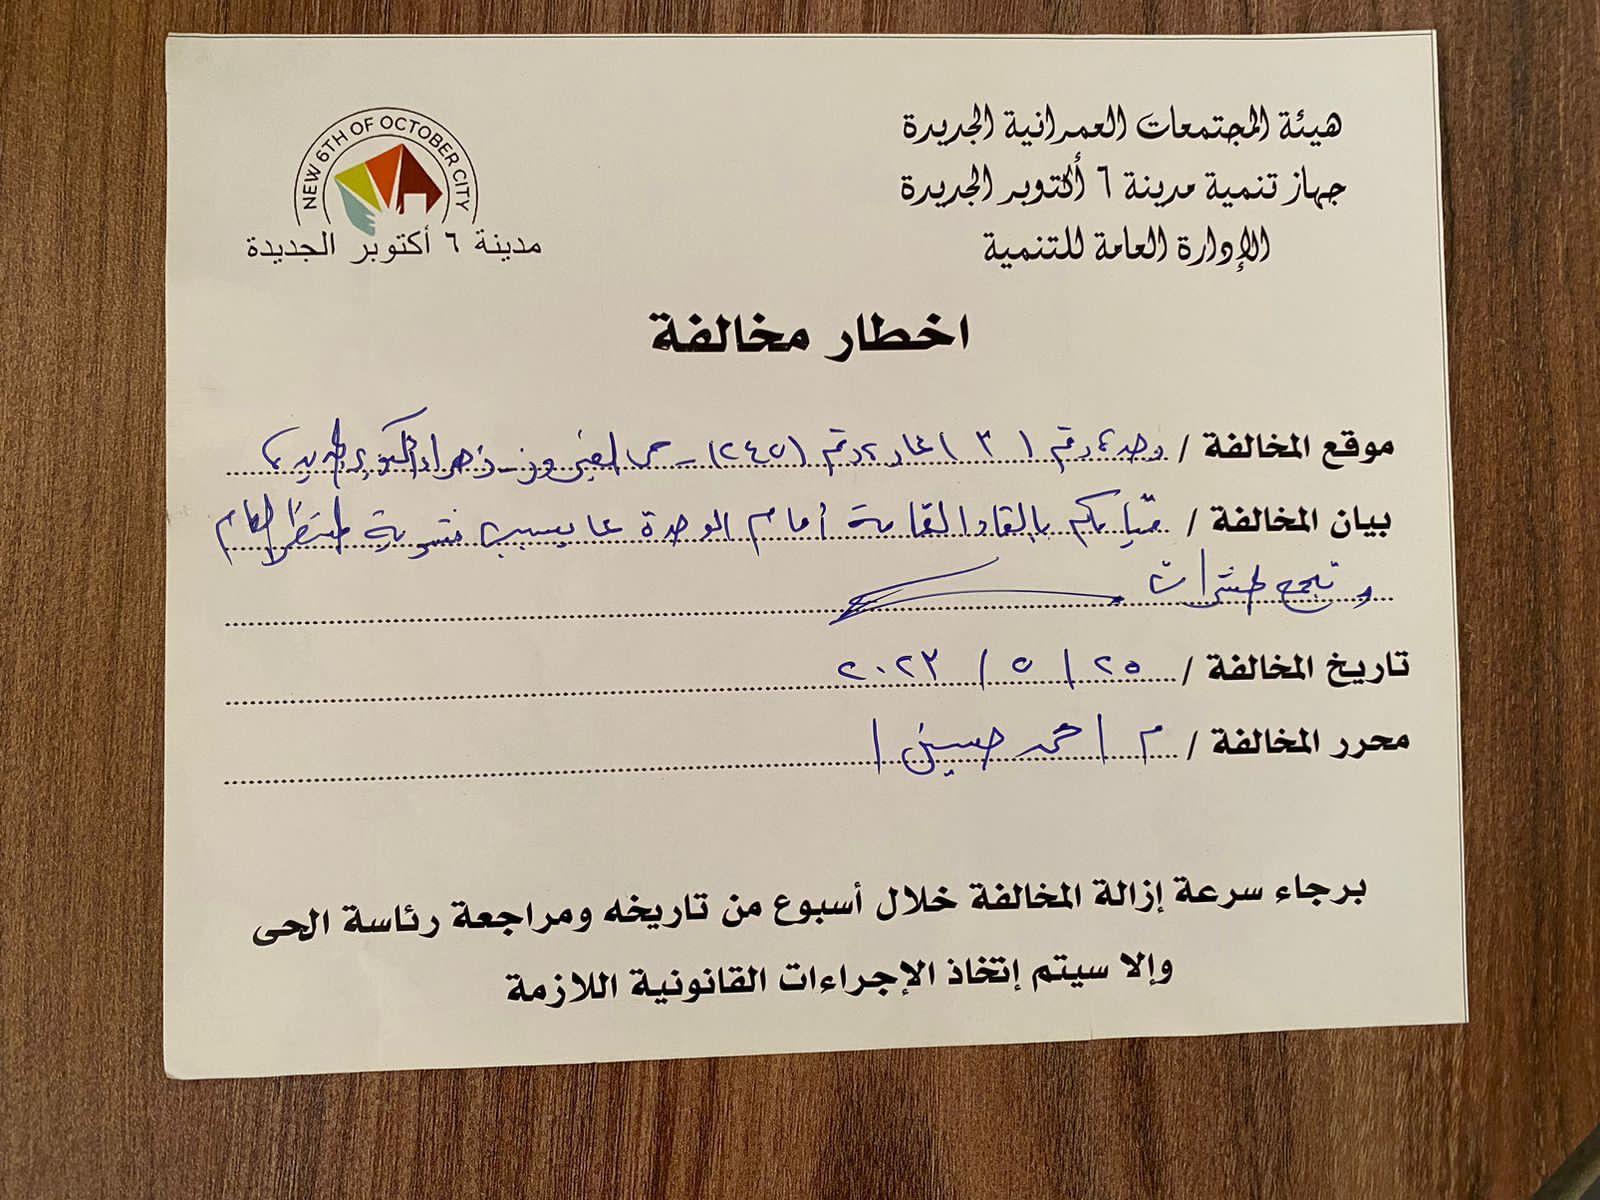 هيئة المجتمعات العمرانية الجديدة
جهاز تنمية مدينة ٦ أكتوبر الجديدة
الإدارة العامة للتنمية
NEW 6TH OF OCTOBER CITY
مدينة ٦ أكتوبر الجديدة
اخطار مخالفة
موقع المخالفة / وحدة رقم (٣) عمارة رقم (٢٤٥) - حى الفيروز - أكتوبر الجديدة
بيان المخالفة / قيامكم بإلقاء القمامة أمام الوحدة مما يسبب تشوية المنظر العام
وتجمع حشرات
تاريخ المخالفة / ٢٥ / ٥ / ٢٠٢٣
محرر المخالفة / م / احمد حسين /
برجاء سرعة إزالة المخالفة خلال أسبوع من تاريخه ومراجعة رئاسة الحى
وإلا سيتم إتخاذ الإجراءات القانونية اللازمة